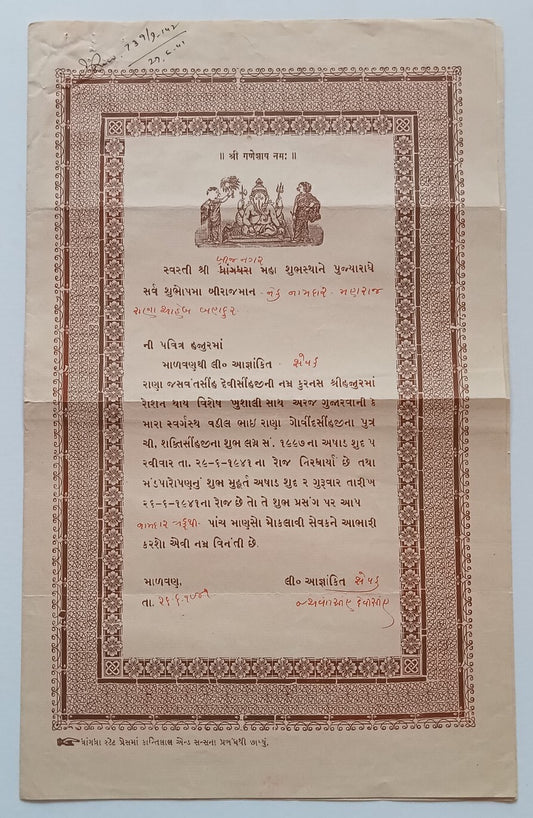 739/9-142
27-6-41
॥ श्री गणेशाय नमः ॥
રાજ નગર
સ્વસ્તી શ્રી ધ્રાંગધ્રા મહા શુભસ્થાને પુજ્યારાધે
સર્વ શુભોપમા બીરાજમાન નામદાર મહારાજ
રાણા સાહેબ બહાદુર
ની પવિત્ર હજુરમાં
માળવણથી લી૦ આજ્ઞાંકિત સેવક
રાણા જસવંતસીંહ દેવીસીંહજીની નમ્ર કુરનસ શ્રીહજુરમાં
રોશન થાય વિશેષ ખુશાલી સાથ અરજ ગુજારવાની કે
મારા સ્વર્ગસ્થ વડીલ ભાઈ રાણા ગોવીંદસીંહજીના પુત્ર
ચી. શક્તિસીંહજીના શુભ લગ્ન સં. ૧૯૯૭ના અષાડ શુદ ૫
રવીવાર તા. ૨૯-૬-૧૯૪૧ ના રોજ નિરધાર્યાં છે તથા
મંડપારોપણનું શુભ મુહૂર્ત અષાડ શુદ ૨ ગુરૂવાર તારીખ
૨૬-૬-૧૯૪૧ના રોજ છે તો તે શુભ પ્રસંગ પર આપ
નામદાર તરફથી પાંચ માણસો મોકલાવી સેવકને આભારી
કરશો એવી નમ્ર વિનંતી છે.
માળવણ,
લી૦ આજ્ઞાંકિત સેવક
તા. ૨૬-૬-૧૯૪૧
જશવંતસીંહ દેવીસીંહ
ધ્રાંગધ્રા સ્ટેટ પ્રેસમાં કાન્તિલાલ એન્ડ સન્સના પ્રબંધથી છાપ્યું.